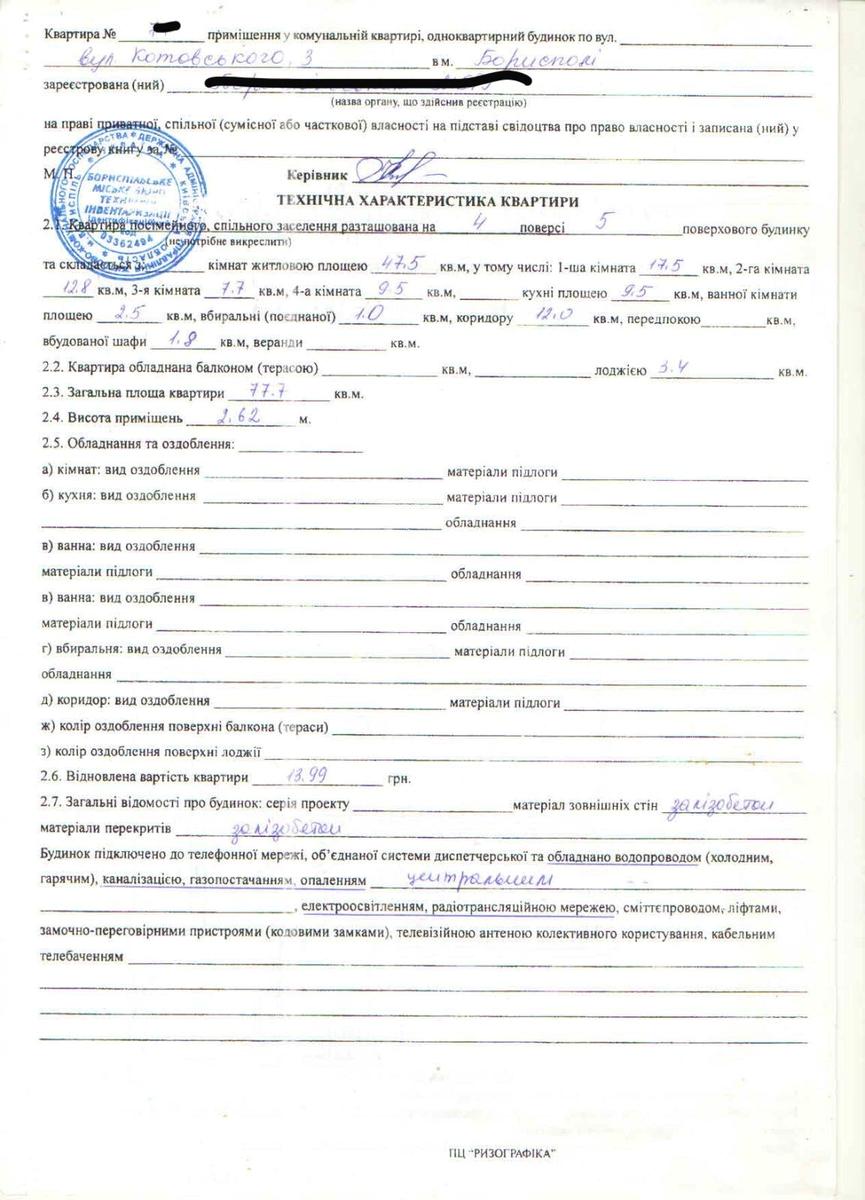 Квартира № приміщення у комунальній квартирі, одноквартирний будинок по вул.
вул Котовського, 3 в м. Борисполі
зареєстрована (ний)
(назва органу, що здійснив реєстрацію)
на праві приватної, спільної (сумісної або часткової) власності на підставі свідоцтва про право власності і записана (ний) у
реєстрову книгу за №
М. П. Керівник
БОРИСПІЛЬСЬКЕ
МІСЬКЕ БЮРО
ТЕХНІЧНОЇ
ІНВЕНТАРИЗАЦІЇ
Ідентифікаційний
код
03362494
ТЕХНІЧНА ХАРАКТЕРИСТИКА КВАРТИРИ
2.1. Квартира посімейного, спільного заселення разташована на 4 поверсі 5 поверхового будинку
(непотрібне викреслити)
та складається з кімнат житловою площею 47.5 кв.м, у тому числі: 1-ша кімната 17.5 кв.м, 2-га кімната
12.8 кв.м, 3-я кімната 7.7 кв.м, 4-а кімната 9.5 кв.м, кухні площею 9.5 кв.м, ванної кімнати
площею 2.5 кв.м, вбиральні (поєднаної) 1.0 кв.м, коридору 12.0 кв.м, передпокою кв.м,
вбудованої шафи 1.8 кв.м, веранди кв.м.
2.2. Квартира обладнана балконом (терасою) кв.м, лоджією 3.4 кв.м.
2.3. Загальна площа квартири 77.7 кв.м.
2.4. Висота приміщень 2.62 м.
2.5. Обладнання та оздоблення:
а) кімнат: вид оздоблення матеріали підлоги
б) кухня: вид оздоблення матеріали підлоги
обладнання
в) ванна: вид оздоблення
матеріали підлоги обладнання
в) ванна: вид оздоблення
матеріали підлоги обладнання
г) вбиральня: вид оздоблення матеріали підлоги
обладнання
д) коридор: вид оздоблення матеріали підлоги
ж) колір оздоблення поверхні балкона (тераси)
з) колір оздоблення поверхні лоджії
2.6. Відновлена вартість квартири 13.99 грн.
2.7. Загальні відомості про будинок: серія проекту матеріал зовнішніх стін залізобетон
матеріали перекритів залізобетон
Будинок підключено до телефонної мережі, об’єднаної системи диспетчерської та обладнано водопроводом (холодним,
гарячим), каналізацією, газопостачанням, опаленням центральним
, електроосвітленням, радіотрансляційною мережею, сміттєпроводом, ліфтами,
замочно-переговірними пристроями (кодовими замками), телевізійною антеною колективного користування, кабельним
телебаченням
ПЦ “РИЗОГРАФІКА”